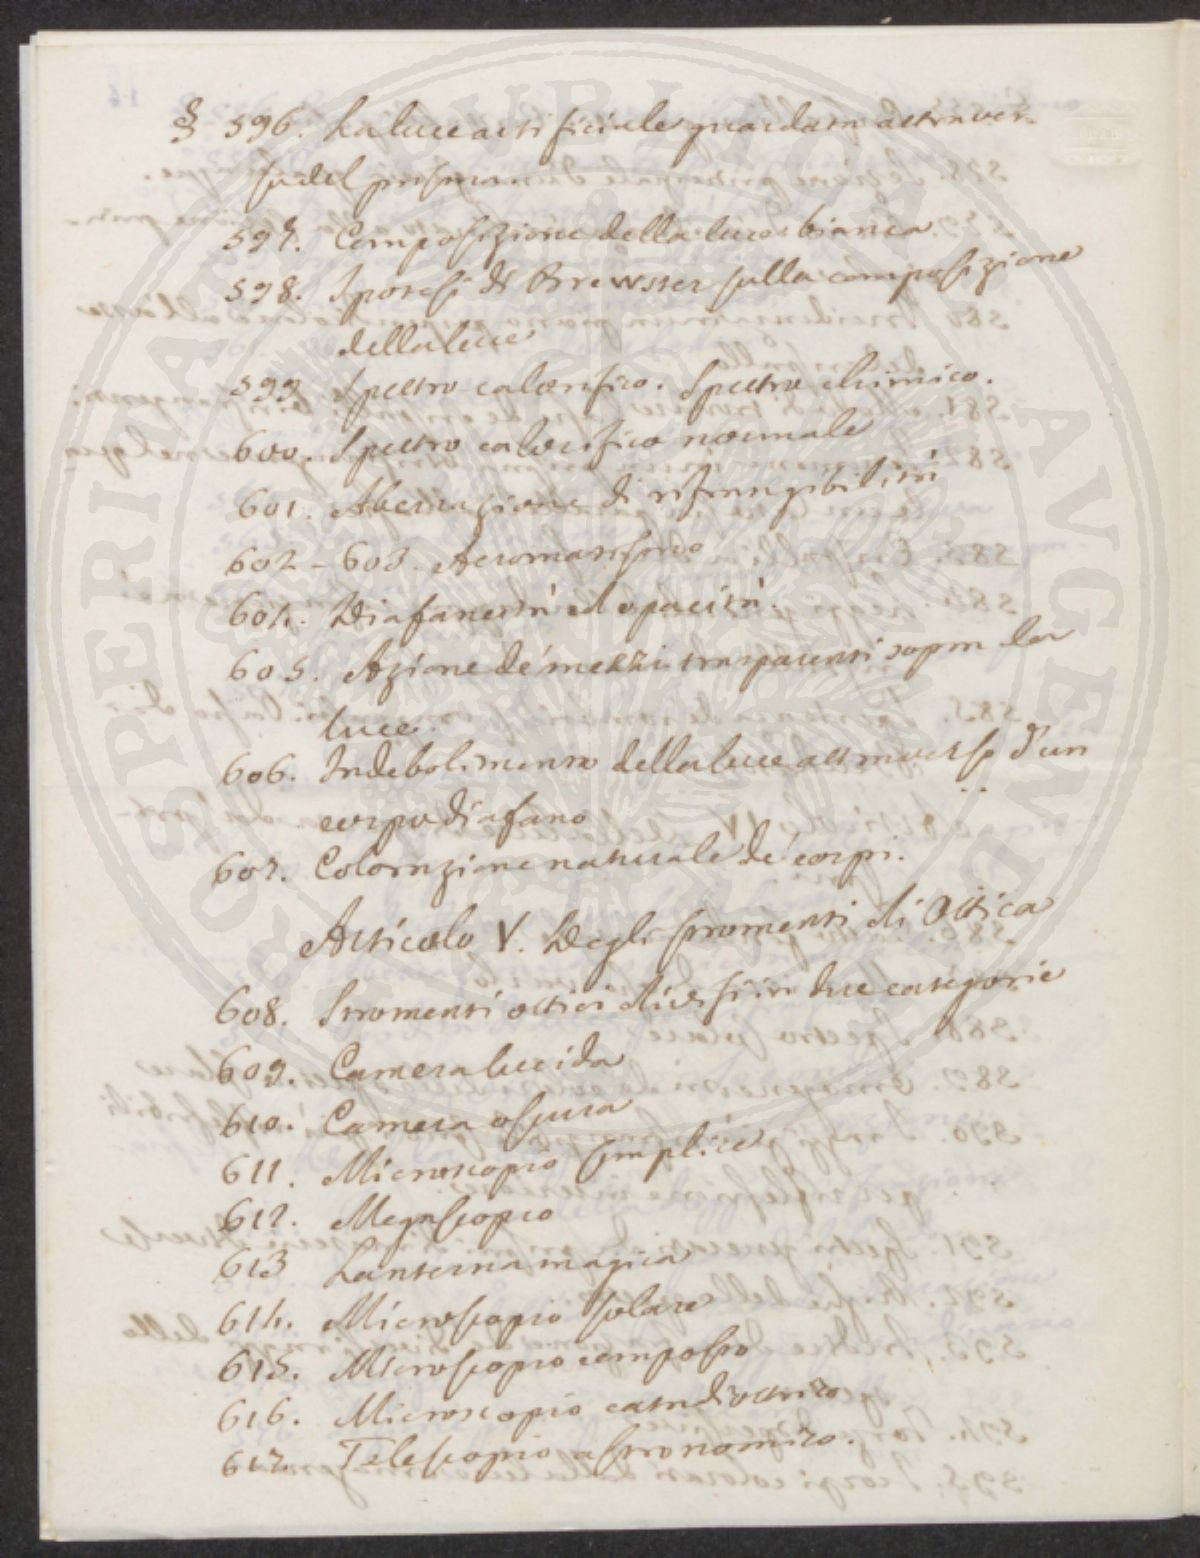 § 596. La luce artificiale guardata attraver-
so del prisma
597. Composizione della luce bianca
598. Ipotesi di Brewster sulla composizione
della luce
599 Spettro calorifico. Spettro chimico.
600. Spettro calorifico normale
601. Aberrazione di rifrangibilità
602 - 603. Acromatismo
604. Diafaneità ed opacità.
605. Azione de' mezzi trasparenti sopra la
luce.
606. Indebolimento della luce attraverso d'un
corpo diafano
607. Colorazione naturale de' corpi.
Articolo V. Degli stromenti di Ottica
608. Stromenti ottici divisi in due categorie
609. Camera lucida
610. Camera oscura
611. Microscopio semplice
612. Megascopio
613 Lanterna magica
614. Microscopio solare
615. Microscopio composto
616. Microscopio catadiottrico
617. Telescopio astronomico.